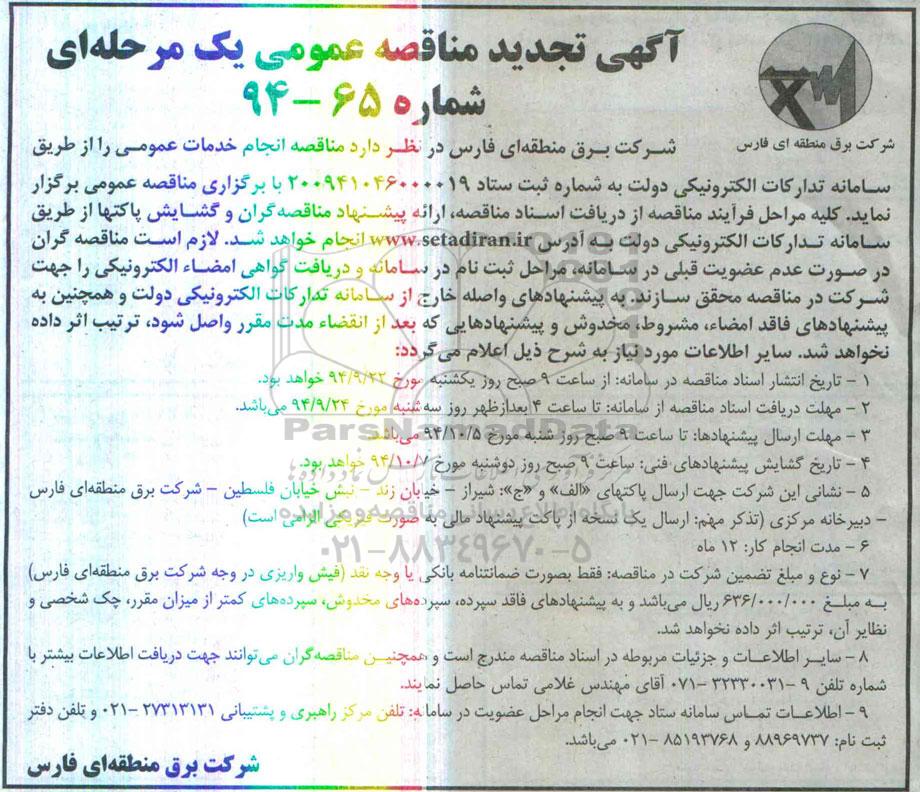 آگهی تجدید مناقصه عمومی یک مرحله‌ای
شماره ۶۵ – ۹۴
شرکت برق منطقه ای فارس
شرکت برق منطقه‌ای فارس در نظر دارد مناقصه انجام خدمات عمومی را از طریق
سامانه تدارکات الکترونیکی دولت به شماره ثبت ستاد ۲۰۰۹۴۱۰۴۶۰۰۰۰۱۹ با برگزاری مناقصه عمومی برگزار
نماید. کلیه مراحل فرآیند مناقصه از دریافت اسناد مناقصه، ارائه پیشنهاد مناقصه‌گران و گشایش پاکتها از طریق
سامانه تدارکات الکترونیکی دولت به آدرس www.setadiran.ir انجام خواهد شد. لازم است مناقصه گران
در صورت عدم عضویت قبلی در سامانه، مراحل ثبت نام در سامانه و دریافت گواهی امضاء الکترونیکی را جهت
شرکت در مناقصه محقق سازند. به پیشنهادهای واصله خارج از سامانه تدارکات الکترونیکی دولت و همچنین به
پیشنهادهای فاقد امضاء، مشروط، مخدوش و پیشنهادهایی که بعد از انقضاء مدت مقرر واصل شود، ترتیب اثر داده
نخواهد شد. سایر اطلاعات مورد نیاز به شرح ذیل اعلام می‌گردد:
۱ – تاریخ انتشار اسناد مناقصه در سامانه: از ساعت ۹ صبح روز یکشنبه مورخ ۹۴/۹/۲۲ خواهد بود.
۲ – مهلت دریافت اسناد مناقصه از سامانه: تا ساعت ۴ بعدازظهر روز سه‌شنبه مورخ ۹۴/۹/۲۴ می‌باشد.
ParsNamadData
۳ – مهلت ارسال پیشنهادها: تا ساعت ۹ صبح روز شنبه مورخ ۹۴/۱۰/۵ می‌باشد.
۴ – تاریخ گشایش پیشنهادهای فنی: ساعت ۹ صبح روز دوشنبه مورخ ۹۴/۱۰/۷ خواهد بود.
۵ – نشانی این شرکت جهت ارسال پاکتهای «الف» و «ج»: شیراز – خیابان زند – نبش خیابان فلسطین – شرکت برق منطقه‌ای فارس
پایگاه اطلاع رسانی مناقصه و مزایده
– دبیرخانه مرکزی (تذکر مهم: ارسال یک نسخه از پاکت پیشنهاد مالی به صورت فیزیکی الزامی است)
۰۲۱-۸۸۳۴۹۶۷۰-۵
۶ – مدت انجام کار: ۱۲ ماه
۷ – نوع و مبلغ تضمین شرکت در مناقصه: فقط بصورت ضمانتنامه بانکی یا وجه نقد (فیش واریزی در وجه شرکت برق منطقه‌ای فارس)
به مبلغ ۶۳۶/۰۰۰/۰۰۰ ریال می‌باشد و به پیشنهادهای فاقد سپرده، سپرده‌های مخدوش، سپرده‌های کمتر از میزان مقرر، چک شخصی و
نظایر آن، ترتیب اثر داده نخواهد شد.
۸ – سایر اطلاعات و جزئیات مربوطه در اسناد مناقصه مندرج است و همچنین مناقصه‌گران می‌توانند جهت دریافت اطلاعات بیشتر با
شماره تلفن ۹ –۳۲۳۳۰۰۳۱ –۰۷۱ آقای مهندس غلامی تماس حاصل نمایند.
۹ – اطلاعات تماس سامانه ستاد جهت انجام مراحل عضویت در سامانه: تلفن مرکز راهبری و پشتیبانی ۲۷۳۱۳۱۳۱ –۰۲۱ و تلفن دفتر
ثبت نام: ۸۸۹۶۹۷۳۷ و ۸۵۱۹۳۷۶۸ –۰۲۱ می‌باشد.
شرکت برق منطقه‌ای فارس